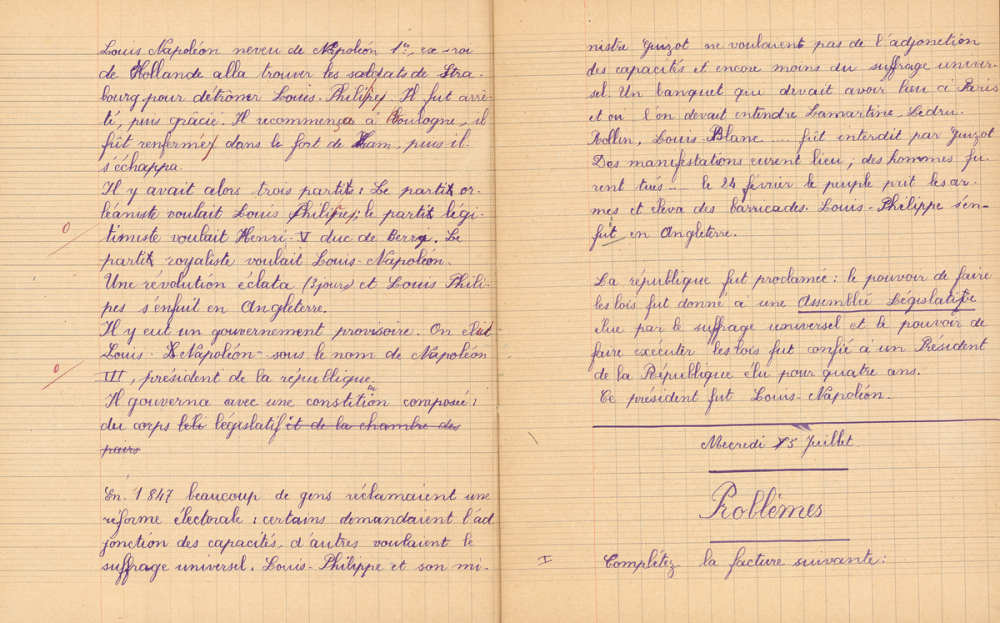 Louis Napoléon neveu de Napoléon 1er, ex-roi
de Hollande alla trouver les soldats de Stra-
bourg pour détroner Louis-Philippes. Il fut arrê-
té, puis gracié. Il recommença à Boulogne, il
fût renfermé dans le fort de Ham, puis il
s'échappa.
Il y avait alors trois partits : Le partit or-
léaniste voulait Louis Philippes; le partit légi-
0
timiste voulait Henri-V duc de Berry. Le
partit royaliste voulait Louis-Napoléon.
Une révolution éclata (3 jours) et Louis Phili-
pes s'enfuit en Angleterre.
Il y eut un gouvernement provisoire. On élut
Louis-Napoléon sous le nom de Napoléon
0
III, président de la république.
Il gouverna avec une constitution composée :
du corps législatif et de la chambre des
pairs
En 1847 beaucoup de gens réclamaient une
réforme électorale : certains demandaient l'ad
jonction des capacités, d'autres voulaient le
suffrage universel. Louis-Philippe et son mi-
nistre Guizot ne voulaient pas de l'adjonction
des capacités et encore moins du suffrage univer-
sel. Un banquet qui devait avoir lieu à Paris
et ou l'on devait entendre Lamartine, Ledru-
Rollin, Louis-Blanc .... fût interdit par Guizot
Des manifestations eurent lieu, des hommes fu-
rent tués .... le 24 février le peuple prit les ar-
mes et éleva des barricades. Louis-Philippe s'en-
fuit en Angleterre.
La république fut proclamée : le pouvoir de faire
les lois fut donné à une Assemblée Législative
élue par le suffrage universel et le pouvoir de
faire exécuter les lois fut confié à un Président
de la République élu pour quatre ans.
Ce président fut Louis-Napoléon.
Mecredi 15 Juillet
Problèmes
I Complétez la facture suivante :